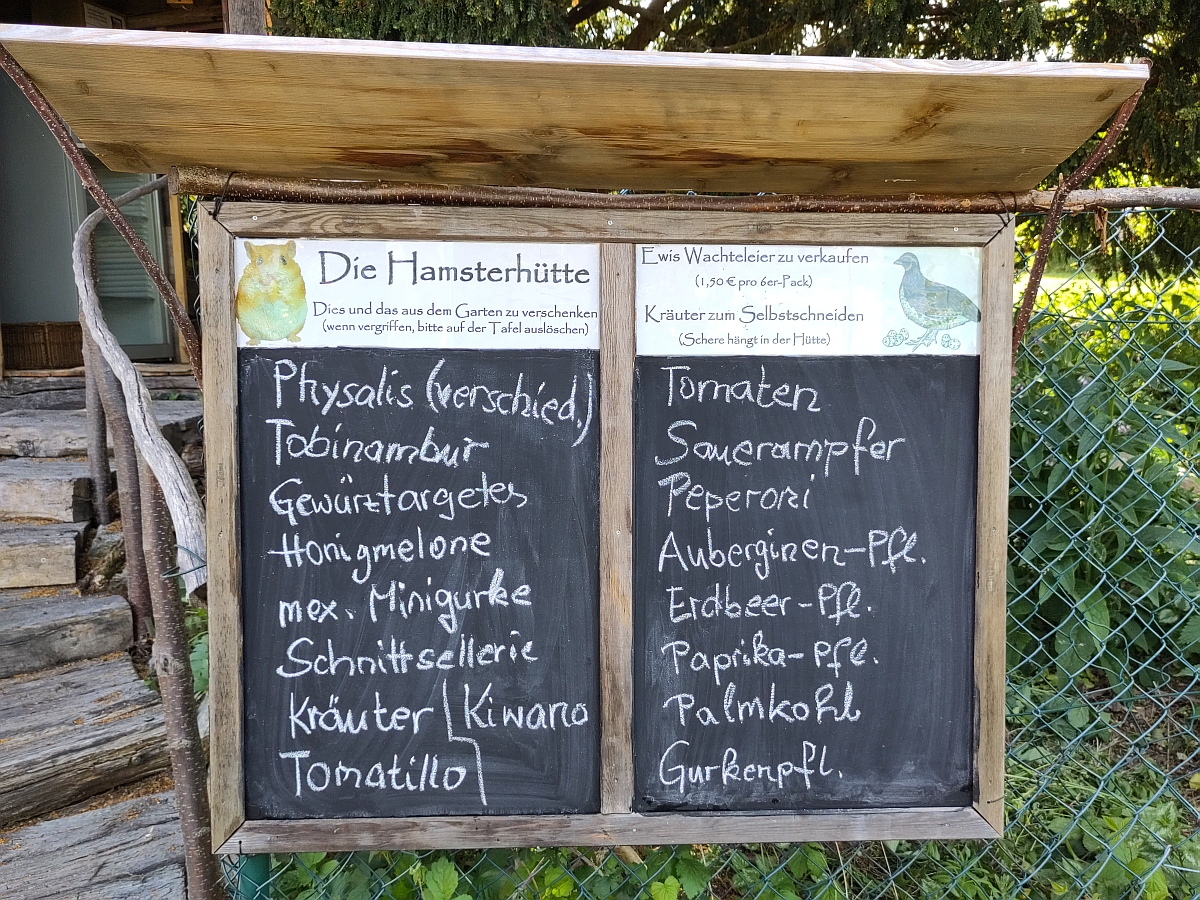 Die Hamsterhütte
Dies und das aus dem Garten zu verschenken
(wenn vergriffen, bitte auf der Tafel auslöschen)
Physalis (verschied.)
Tobinambur
Gewürztargetes
Honigmelone
mex. Minigurke
Schnittsellerie
Kräuter
Kiwano
Tomatillo
Ewis Wachteleier zu verkaufen
(1,50 € pro 6er-Pack)
Kräuter zum Selbstschneiden
(Schere hängt in der Hütte)
Tomaten
Sauerampfer
Peperoni
Auberginen-Pfl.
Erdbeer-Pfl.
Paprika-Pfl.
Palmkohl
Gurkenpfl.